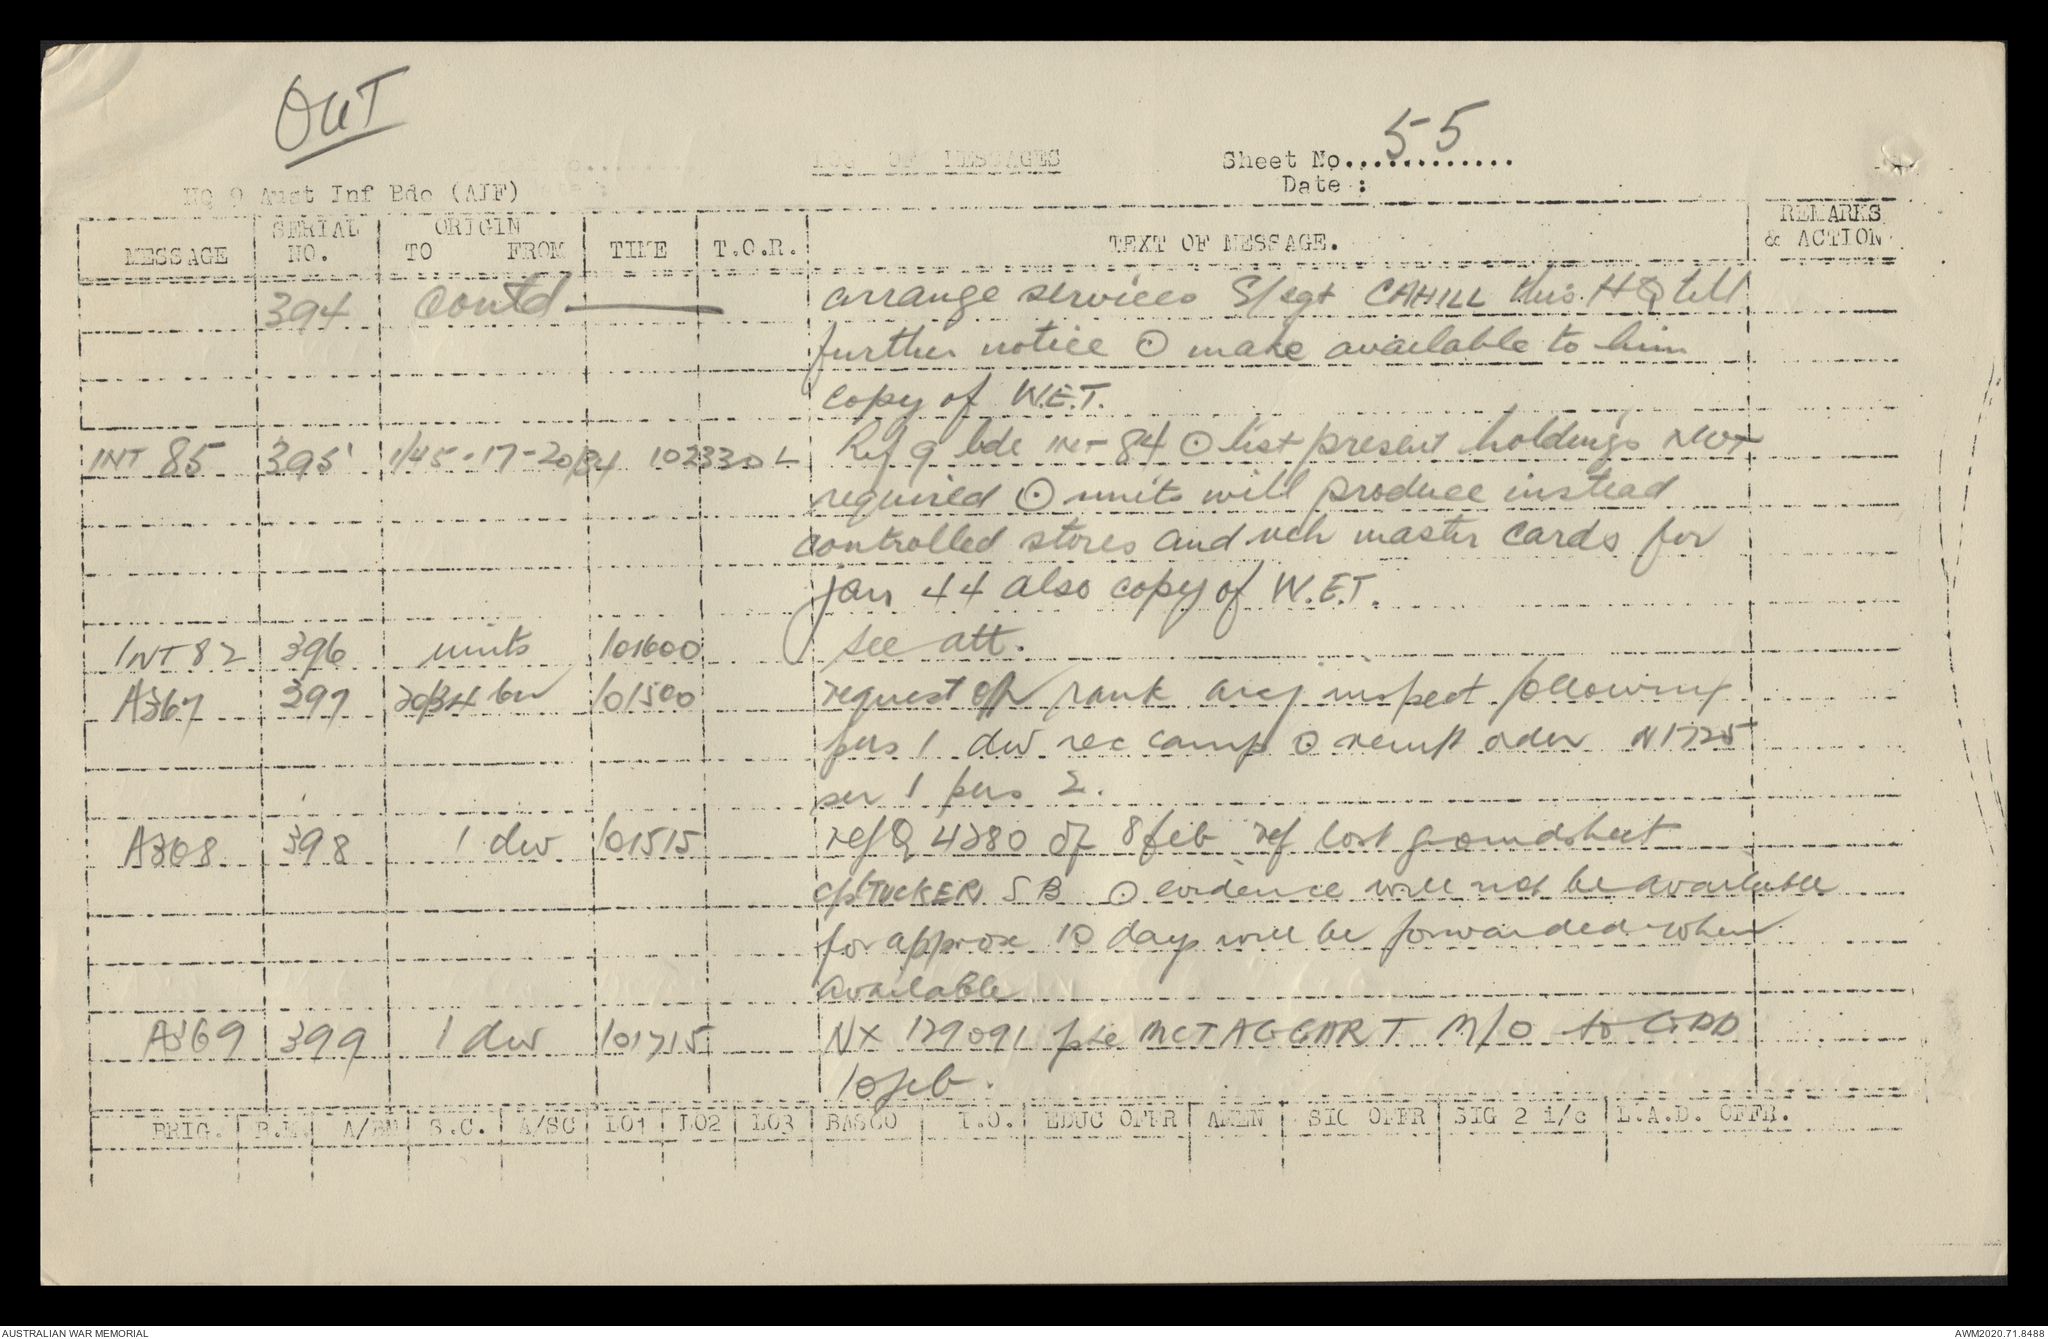 OUT
LOG OF MESSAGES
Sheet No............. 55
Date :
HQ 9 Aust Inf Bde (AIF)
MESSAGE SERIAL NO. ORIGIN TO FROM TIME T.O.R. TEXT OF MESSAGE. REMARKS & ACTION
394 contd arrange services S/sgt CAHILL this HQ till
further notice ⊙ make available to him
copy of W.E.T.
INT 85 395 1/45-17-20/34 102330L Ref 9 bde INT 84 ⊙ list present holdings NOT
required ⊙ units will produce instead
controlled stores and veh master cards for
jan 44 also copy of W.E.T.
INT 82 396 units 101600 see att.
A367 397 20/34 bn 101500 request offr rank inspect following
pers 1 dw rec camp ⊙ order N1725
ser 1 pers 2.
A368 398 1 dw 101515 ref Q 4280 of 8 feb ref lost groundsheet
cpl TUCKER S B ⊙ evidence will not be available
for approx 10 days will be forwarded when
available
A369 399 1 dw 101715 NX 129091 pte McTAGGART M/O to GDD
10 feb.
BRIG. B.M. A/BM S.C. A/SC LO1 LO2 LO3 BASCO I.O. EDUC OFFR AMEN SIG OFFR SIG 2 i/c L.A.D. OFFR.
AUSTRALIAN WAR MEMORIAL
AWM2020.71.8488